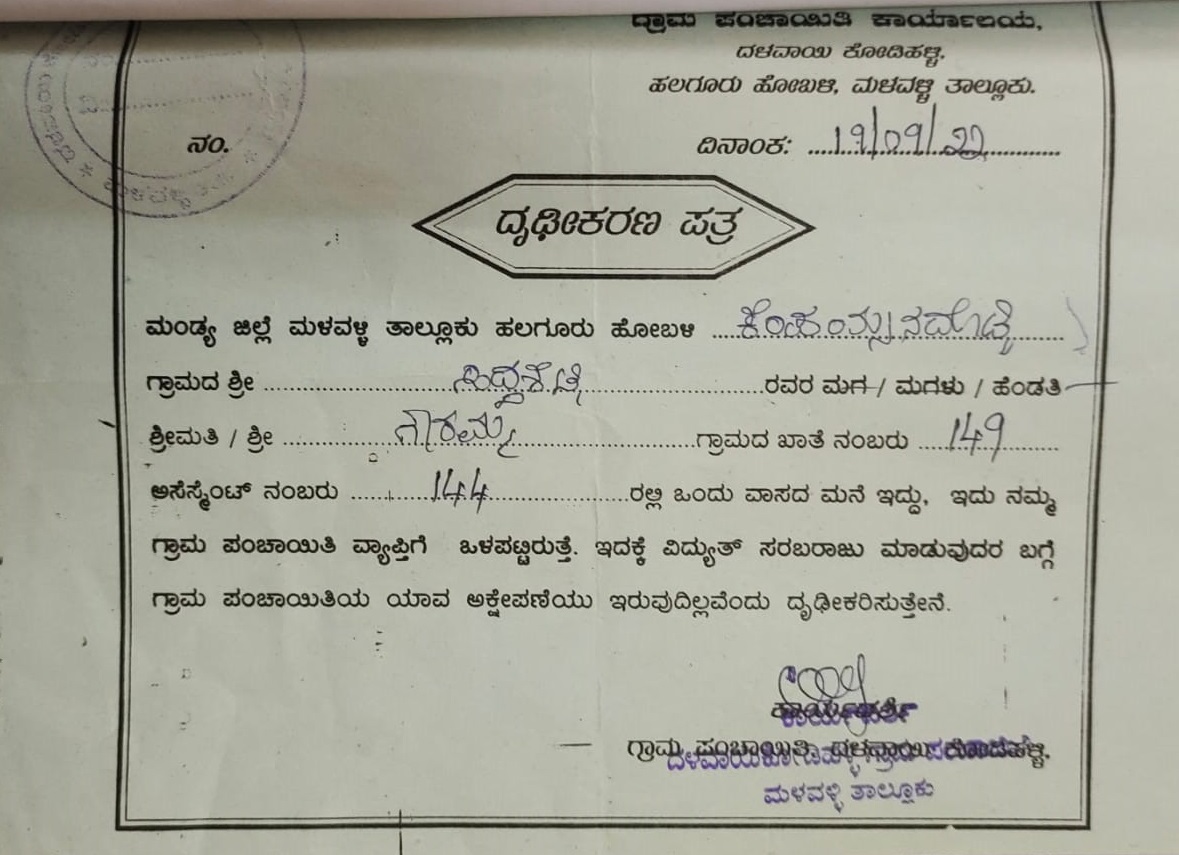 ಗ್ರಾಮ ಪಂಚಾಯಿತಿ ಕಾರ್ಯಾಲಯ,
ದಳವಾಯಿ ಕೋಡಿಹಳ್ಳಿ,
ಹಲಗೂರು ಹೋಬಳಿ, ಮಳವಳ್ಳಿ ತಾಲ್ಲೂಕು.
ನಂ. ದಿನಾಂಕ: 19/09/22
ದೃಢೀಕರಣ ಪತ್ರ
ಮಂಡ್ಯ ಜಿಲ್ಲೆ ಮಳವಳ್ಳಿ ತಾಲ್ಲೂಕು ಹಲಗೂರು ಹೋಬಳಿ
ಗ್ರಾಮದ ಶ್ರೀ ಸಿದ್ದಶೆಟ್ಟಿ ರವರ ಮಗ / ಮಗಳು / ಹೆಂಡತಿ
ಶ್ರೀಮತಿ / ಶ್ರೀ ಗೌರಮ್ಮ ಗ್ರಾಮದ ಖಾತೆ ನಂಬರು 149
ಅಸೆಸ್ಮೆಂಟ್ ನಂಬರು 144 ರಲ್ಲಿ ಒಂದು ವಾಸದ ಮನೆ ಇದ್ದು, ಇದು ನಮ್ಮ
ಗ್ರಾಮ ಪಂಚಾಯಿತಿ ವ್ಯಾಪ್ತಿಗೆ ಒಳಪಟ್ಟಿರುತ್ತೆ. ಇದಕ್ಕೆ ವಿದ್ಯುತ್ ಸರಬರಾಜು ಮಾಡುವುದರ ಬಗ್ಗೆ
ಗ್ರಾಮ ಪಂಚಾಯಿತಿಯ ಯಾವ ಅಕ್ಷೇಪಣೆಯು ಇರುವುದಿಲ್ಲವೆಂದು ದೃಢೀಕರಿಸುತ್ತೇನೆ.
ಕಾರ್ಯದರ್ಶಿ
ಗ್ರಾಮ ಪಂಚಾಯಿತಿ, ದಳವಾಯಿ ಕೋಡಿಹಳ್ಳಿ.
ಮಳವಳ್ಳಿ ತಾಲ್ಲೂಕು